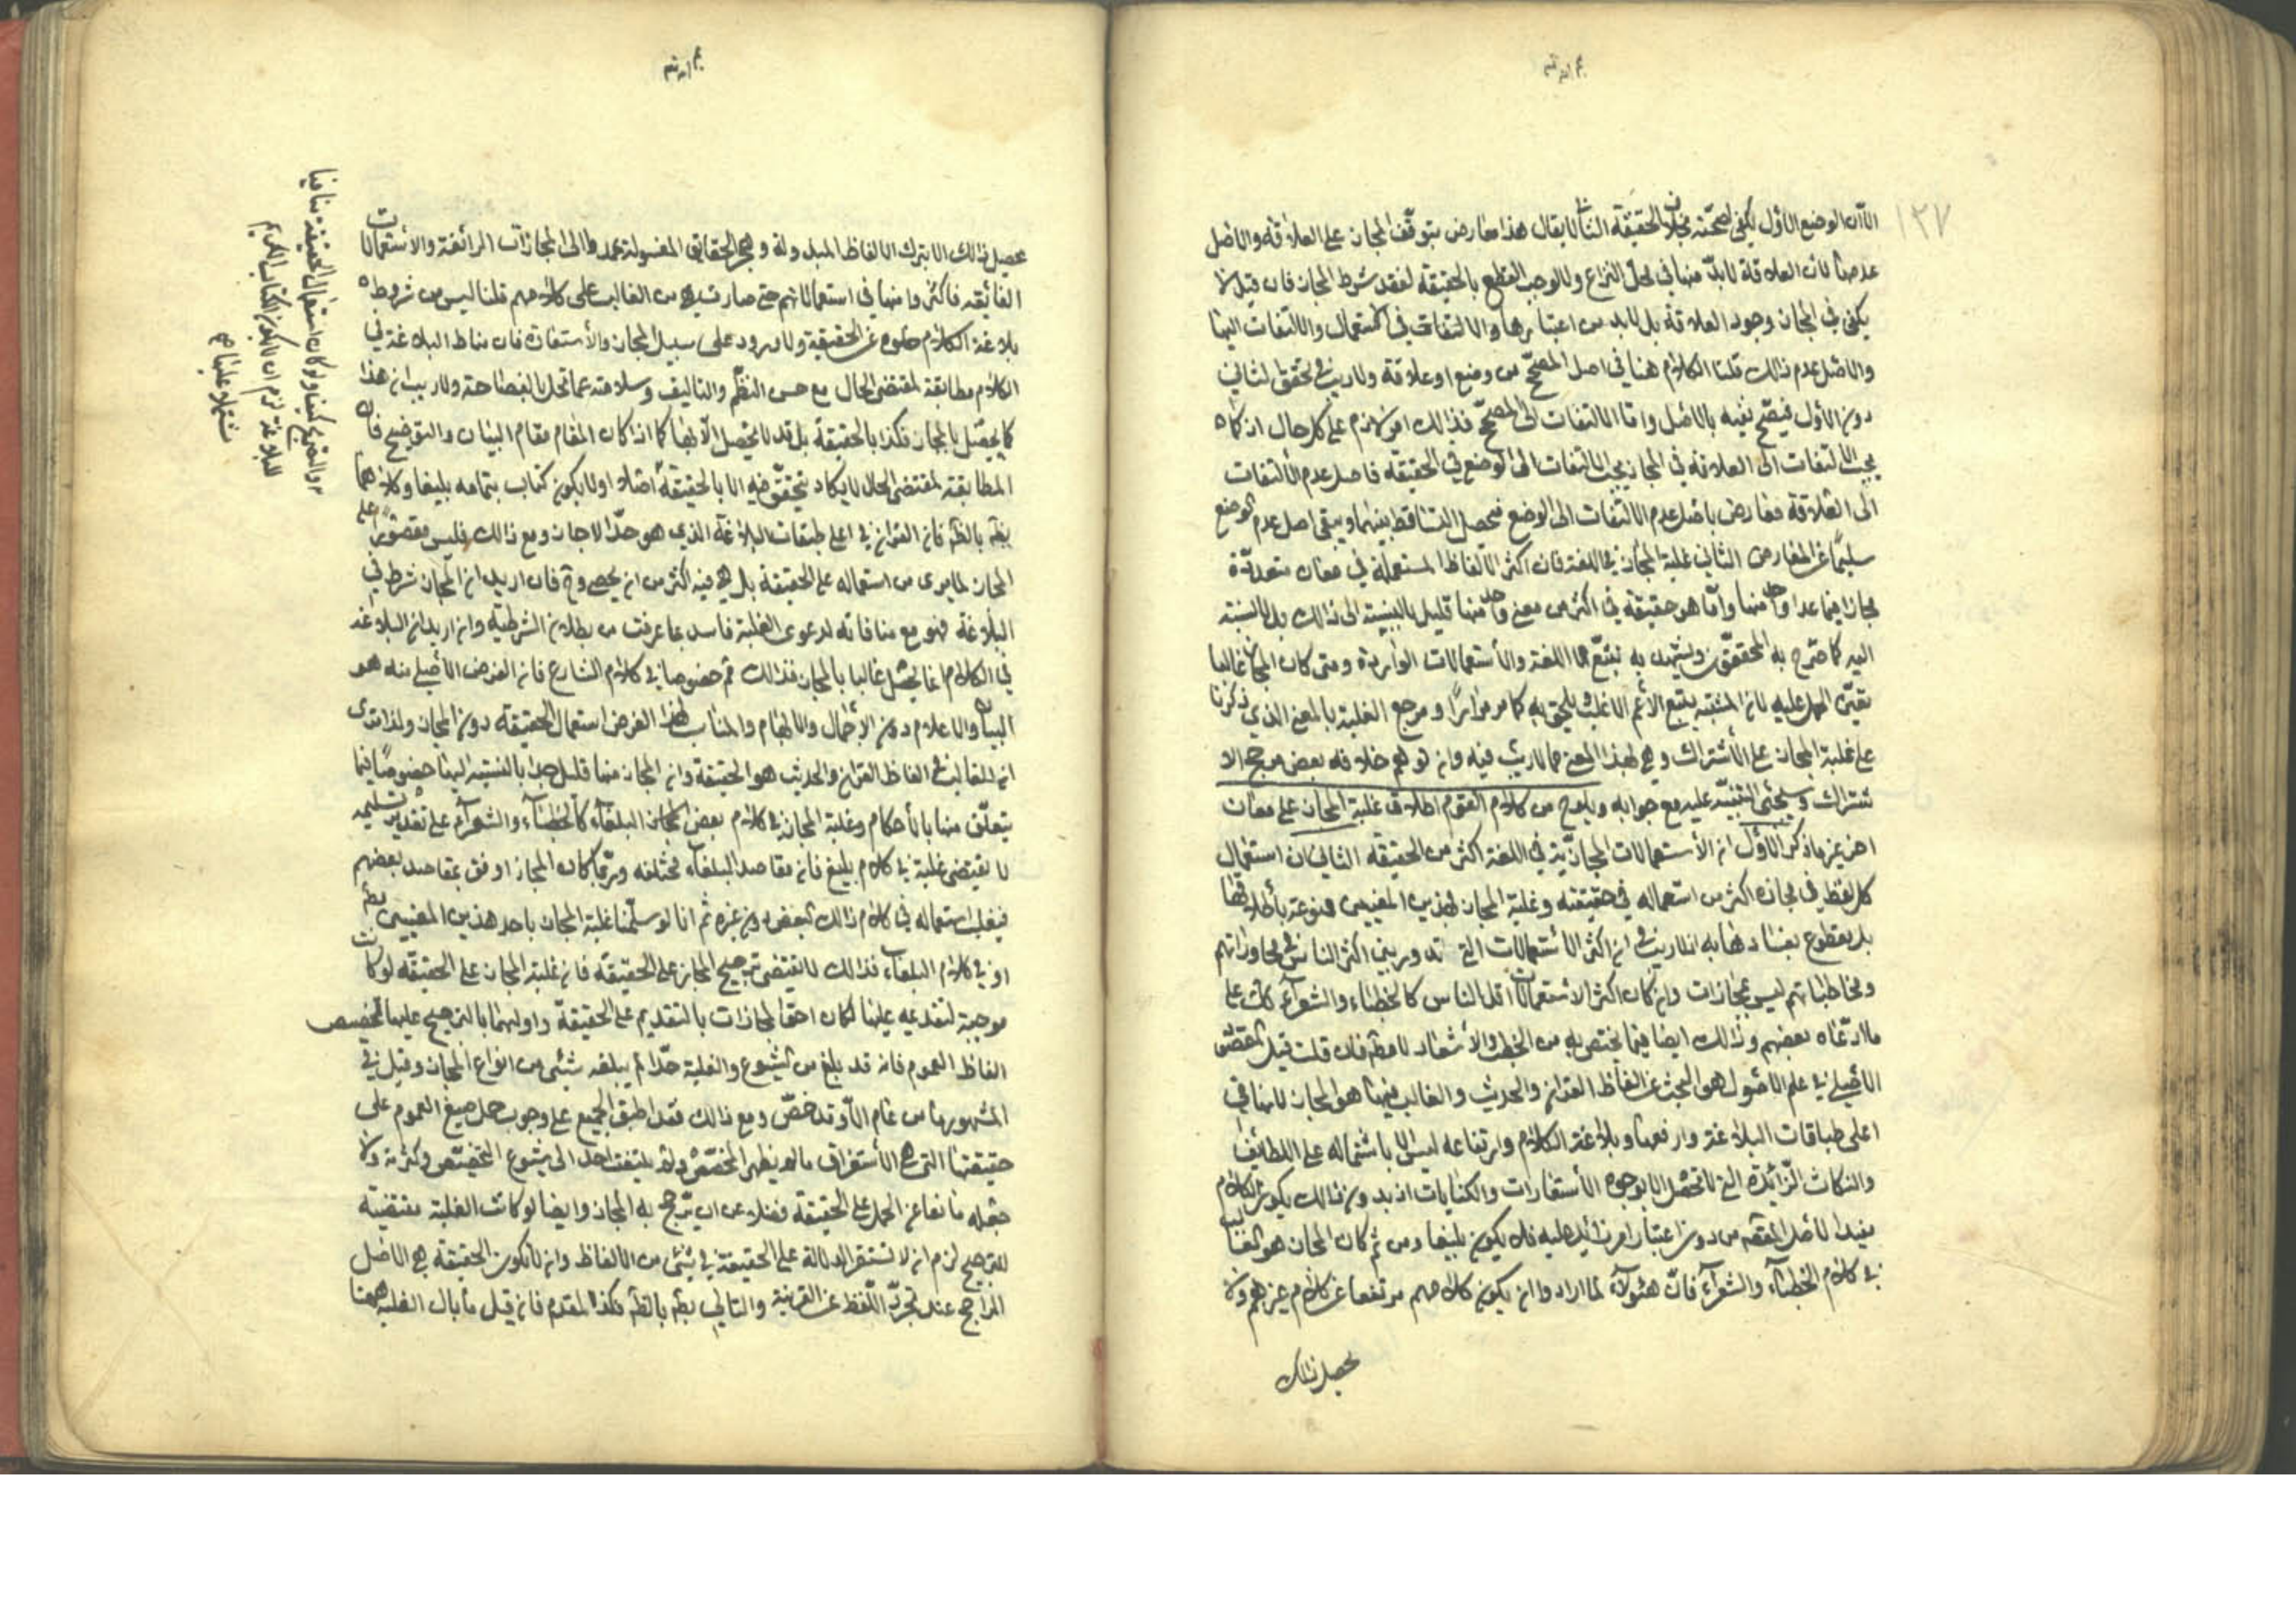 ١٣٧
الا ان الوضع الاول يكفى لصحته بخلاف الحقيقة الثانية لا يقال هذا معارض بتوقف المجاز على العلاقة والاصل
عدمها لان العلاقة لا بد منها فى محل النزاع والا لوجب القطع بالحقيقة لفقد شرط المجاز فان قيل لا
يكفى فى المجاز وجود العلاقة بل لا بد من اعتبارها والالتفات فى الاستعمال والالتفات اليها
والاصل عدم ذلك قلنا الكلام هنا فى اصل المصحح من وضع او علاقة ولا ريب فى تحقق الثانى
دون الاول فيصح نفيه بالاصل واما الالتفات الى المصحح فذلك امر لازم على كل حال اذ كما
يجب الالتفات الى العلاقة فى المجاز يجب الالتفات الى الوضع فى الحقيقة فاصل عدم الالتفات
الى العلاقة معارض باصل عدم الالتفات الى الوضع فيحصل التساقط بينهما ويبقى اصل عدم الوضع
سليما عن المعارض الثانى غلبة المجاز فى اللغة فان اكثر الالفاظ المستعملة فى معان متعددة
مجاز فيما عدا واحد منها واما هو حقيقة فى اكثر من معنى واحد منها قليل بالنسبة الى ذلك بل لا نسبة
اليه كما صرح به المحققون ويشهد به تتبع اللغة والاستعمالات الواردة ومتى كان المجاز غالبا
تعين الحمل عليه لان المشتبه يتبع الاعم الاغلب ويلحق به كما مر مرارا ومرجع الغلبة بالمعنى الذى ذكرنا
على غلبة المجاز على الاشتراك وهى بهذا المعنى مما لا ريب فيه وان توهم خلافه بعض مرجح الا
شتراك وسيجئ التنبيه عليه مع جوابه ويلوح من كلام القوم اطلاق غلبة المجاز على معان
اخر غير ما ذكر الاول ان الاستعمالات المجازية فى اللغة اكثر من الحقيقة الثانى ان استعمال
كل لفظ فى مجازه اكثر من استعماله فى حقيقته وغلبة المجاز بهذين المعنيين ممنوعة باطلاقها
بل مقطوع بفسادها به اذ لا ريب فى ان اكثر الاستعمالات التى تدور بين اكثر الناس فى محاوراتهم
ومخاطباتهم ليس بمجازات وان كان اكثر الاستعمالات اقل الناس كالخطباء والشعراء كك على
ما ادعاه بعضهم وذلك ايضا فيما يختص به من الخطب والاشعار لا مطم فان قلت قيل المقصد
الاصلى فى علم الاصول هو البحث عن الفاظ القران والحديث والغالب فيهما هو المجاز لانها فى
اعلى طباقات البلاغة وارفعها وبلاغة الكلام وارتفاعه ليس الا باشتماله على اللطايف
والنكات الزائدة التى لا تحصل الا بوجوه الاستعارات والكنايات اذ بدون ذلك يكون الكلام
مفيدا لاصل المقصد من دون اعتبار امر زائد عليه فلا يكون بليغا ومن ثم كان المجاز هو الغالب
فى كلام الخطباء والشعراء فان هئولاء لما ارادوا ان يكون كلامهم مرتفعا عن كلام غيرهم ولا
يحصل ذلك
يحصل ذلك الا بترك الالفاظ المبذولة وهجر الحقايق المغسولة عمدوا الى المجازات الرائقة والاستعمالات
الفائقة فاكثروا منها فى استعمالاتهم حتى صارت هى من الغالب على كلامهم قلنا ليس من شروط
بلاغة الكلام خلوه عن الحقيقة ولا وروده على سبيل المجاز والاستعارة فان مناط البلاغة فى
الكلام مطابقة لمقتضى الحال مع حسن النظم والتاليف وسلامته عما تخل بالفصاحة ولا ريب ان هذا
كما يحصل بالمجاز فكذا بالحقيقة بل قد لا يحصل الا بها كما اذا كان المقام مقام البيان والتوضيح فان
المطابقة لمقتضى الحال لا يكاد يتحقق فيه الا بالحقيقة اولا يكون كتاب بتمامه بليغا وكلاهما
بطم بالظم فان القران فى اعلى طبقات البلاغة الذى هو حد الاعجاز ومع ذلك فليس مقصورا على
المجاز لما يرى من استعماله على الحقيقة بل هى فيه اكثر من ان يحصى وح فان اريد ان المجاز شرط فى
البلاغة فهو مع منافاته لدعوى الغلبة فاسد بما عرفت من بطلان الشرطية وان اريد ان البلاغة
فى الكلام انما يحصل غالبا بالمجاز فذلك ثم خصوصا فى كلام الشارع فان الغرض الاصلى منه هو
البيان والاعلام دون الاجمال والابهام والمناسب لهذا الغرض استعمال الحقيقة دون المجاز ولذا ترى
ان الغالب فى الفاظ القران والحديث هو الحقيقة وان المجاز منها قليل جدا بالنسبة اليها خصوصا فيما
يتعلق منها بالاحكام وغلبة المجاز فى كلام بعض البلغاء كالخطباء والشعراء على تقدير تسليمه
لا يقتضى غلبة فى كلام بليغ فان مقاصد البلغاء مختلفة وربما كان المجاز اوفق بمقاصد بعضهم
فيغلب استعماله فى كلام ذلك البعض دون غيره ثم انا لو سلمنا غلبة المجاز باحد هذين المعنيين مطم
او فى كلام البلغاء فذلك لا يقتضى ترجيح المجاز على الحقيقة فان غلبة المجاز على الحقيقة لو كانت
موجبة لتقديمه عليها لكان احق المجازات بالتقديم على الحقيقة واولها بالترجيح عليها تخصيص
الفاظ العموم فانه قد بلغ من الشيوع والغلبة حدا لم يبلغه شئ من انواع المجاز وقيل فى
المشهور ما من عام الا وقد خص ومع ذلك فقد اطبق الجميع على وجوب حمل صيغ العموم على
حقيقتها التى هى الاستغراق ما لم يظهر المخصص ولم يلتفت احد الى شيوع التخصيص وكثرته ولا
جعله مانعا عن الحمل على الحقيقة فضلا عن ان يرجح به المجاز وايضا لو كانت الغلبة مقتضية
للترجيح لزم ان لا تستقر الدلالة على الحقيقة فى شئ من الالفاظ وان لا تكون الحقيقة هى الاصل
الراجح عند تجرد اللفظ عن القرينة والتالى بطم بالظم فكذا المقدم فان قيل ما بال الغلبة ههنا
والتوضيح كيف ولو كان استعمال الحقيقة منافيا
للبلاغة لزم ان لا يكون الكتاب الكريم
مشتملا عليها